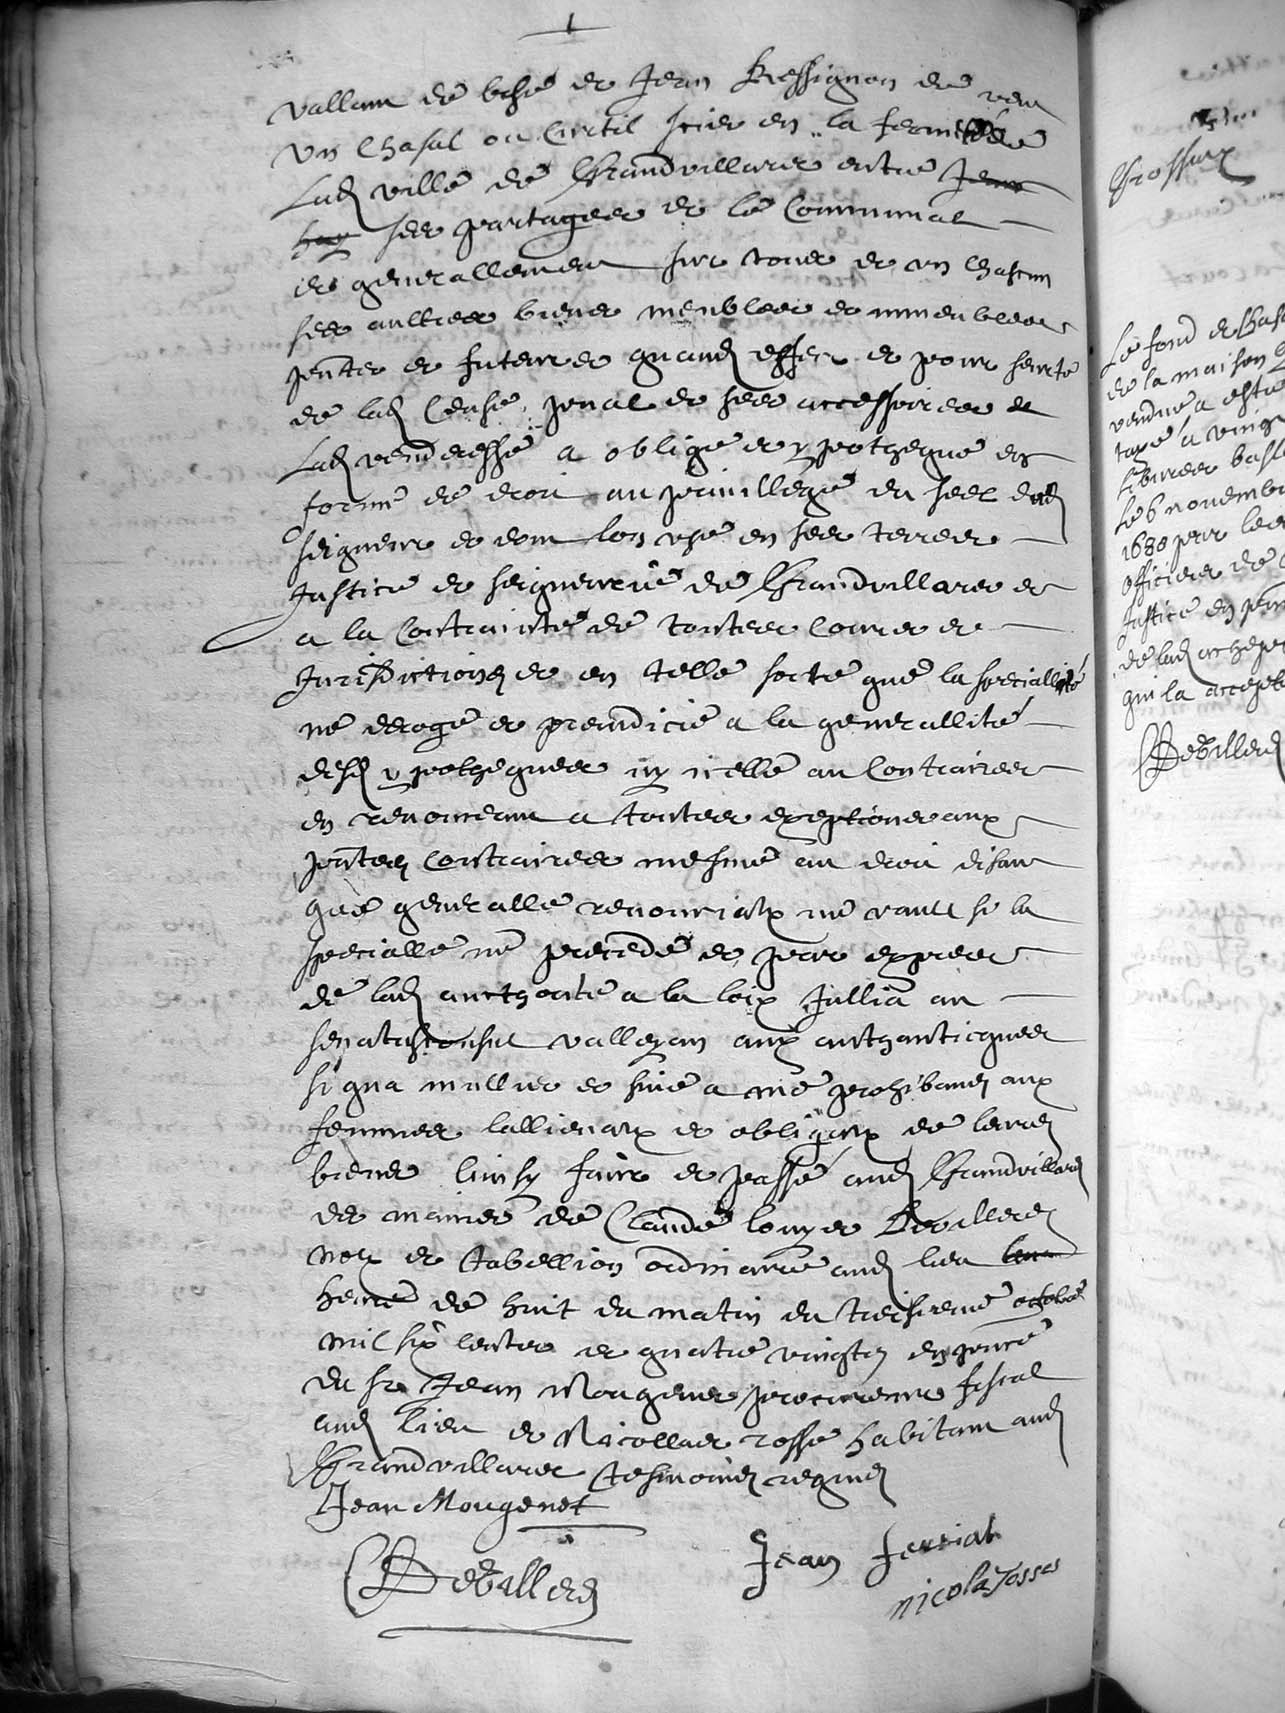 vallant de bise et Jean Ressignon de vent
Un Chasal ou Curtil scize en la
Lad ville de Grandvillars entre Jean
hay ses partages et le Communal
et generallement sur tous et un chascun
ses aultres biens meubles et immeubles
pnts et futeurs quand effect et pour seurte
de lad Cense, pnal et sees accessoires et
Lad venderesse a oblige et ypothegue en
forme de droit au privillege du seel dud
seigneur et dont lon use en sees terres
Justice et seigneurie de Grandvillars et
a la Contrainte de toutes Cours et
Jurisdictions et en telle sorte que la speciallité
ne deroge et preiudicie a la generallité
desd ypothegues ny icelle au Contraires
en renonceant a toutes exeptions aux
pntes Contraires mesme au droit disant
que generalle renonciaon ne vault si la
specialle ne precede et pour expres
de lad aucthorite a la loix Jullia au
senatusconsul valleyan aux authanticques
si qua mullier et sive a me prohiband aux
femmes lallienaon et obligaon de leurs
biens Ainsy faict et passé aud Grandvillard
es mains de Claude louys Devillers
nore et tabellion ordinaire aud lieu
heure de huit du matin du treiziesme octobre
mil six centes et quatre vingts en pnce
du sr Jean Mougenet procureur fiscal
aud lieu et Nicollas rosse habitant aud
Grandvillars tesmoins requis
Jean Mougenet
Devillers
Jean ferriat
nicola rosse
Grosse pnt
Le fond et Chas
de la maison
vendue a esté
taxé a vingt
Libvres basl
le 6 novembre
1680 par les
officiers de
Justice en pnce
de lad achept
qui la accept
Devillers